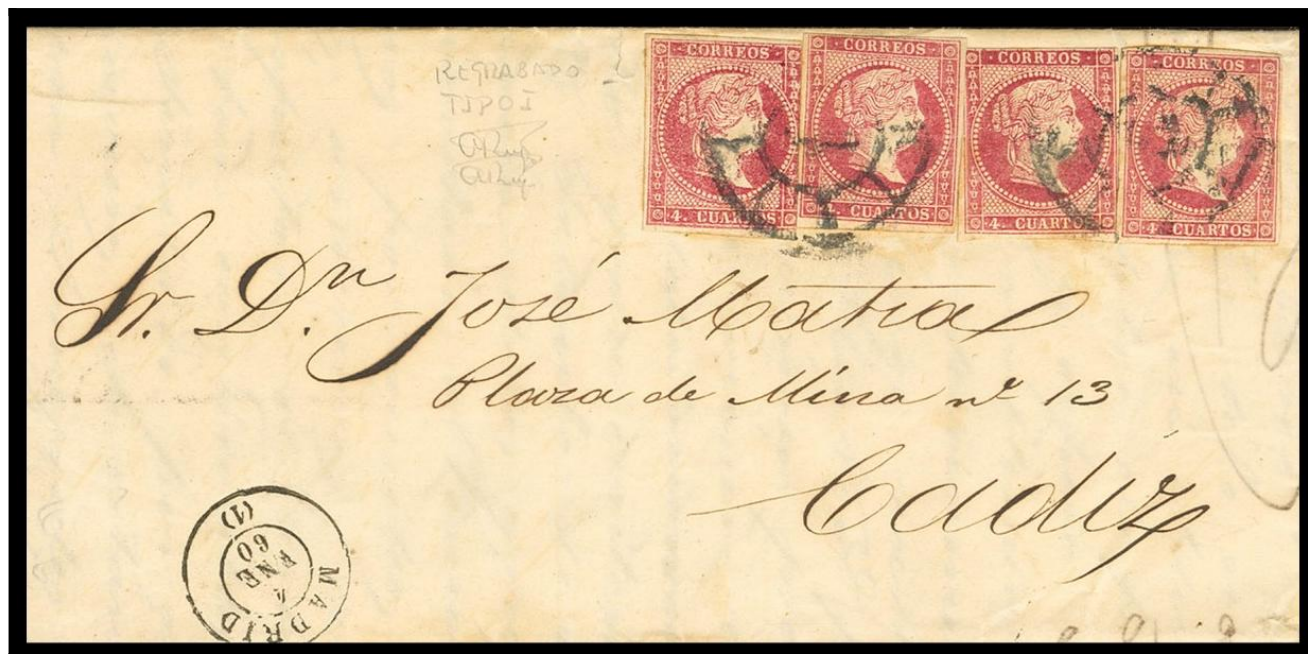 REGRABADO
TIPO I
CORREOS CORREOS CORREOS CORREOS
4. CUARTOS CUARTOS 4. CUARTOS 4. CUARTOS
Sr. Dn. José Matia
Plaza de Mina nº 13
Cadiz
MADRID
4
ENE
60
(1)